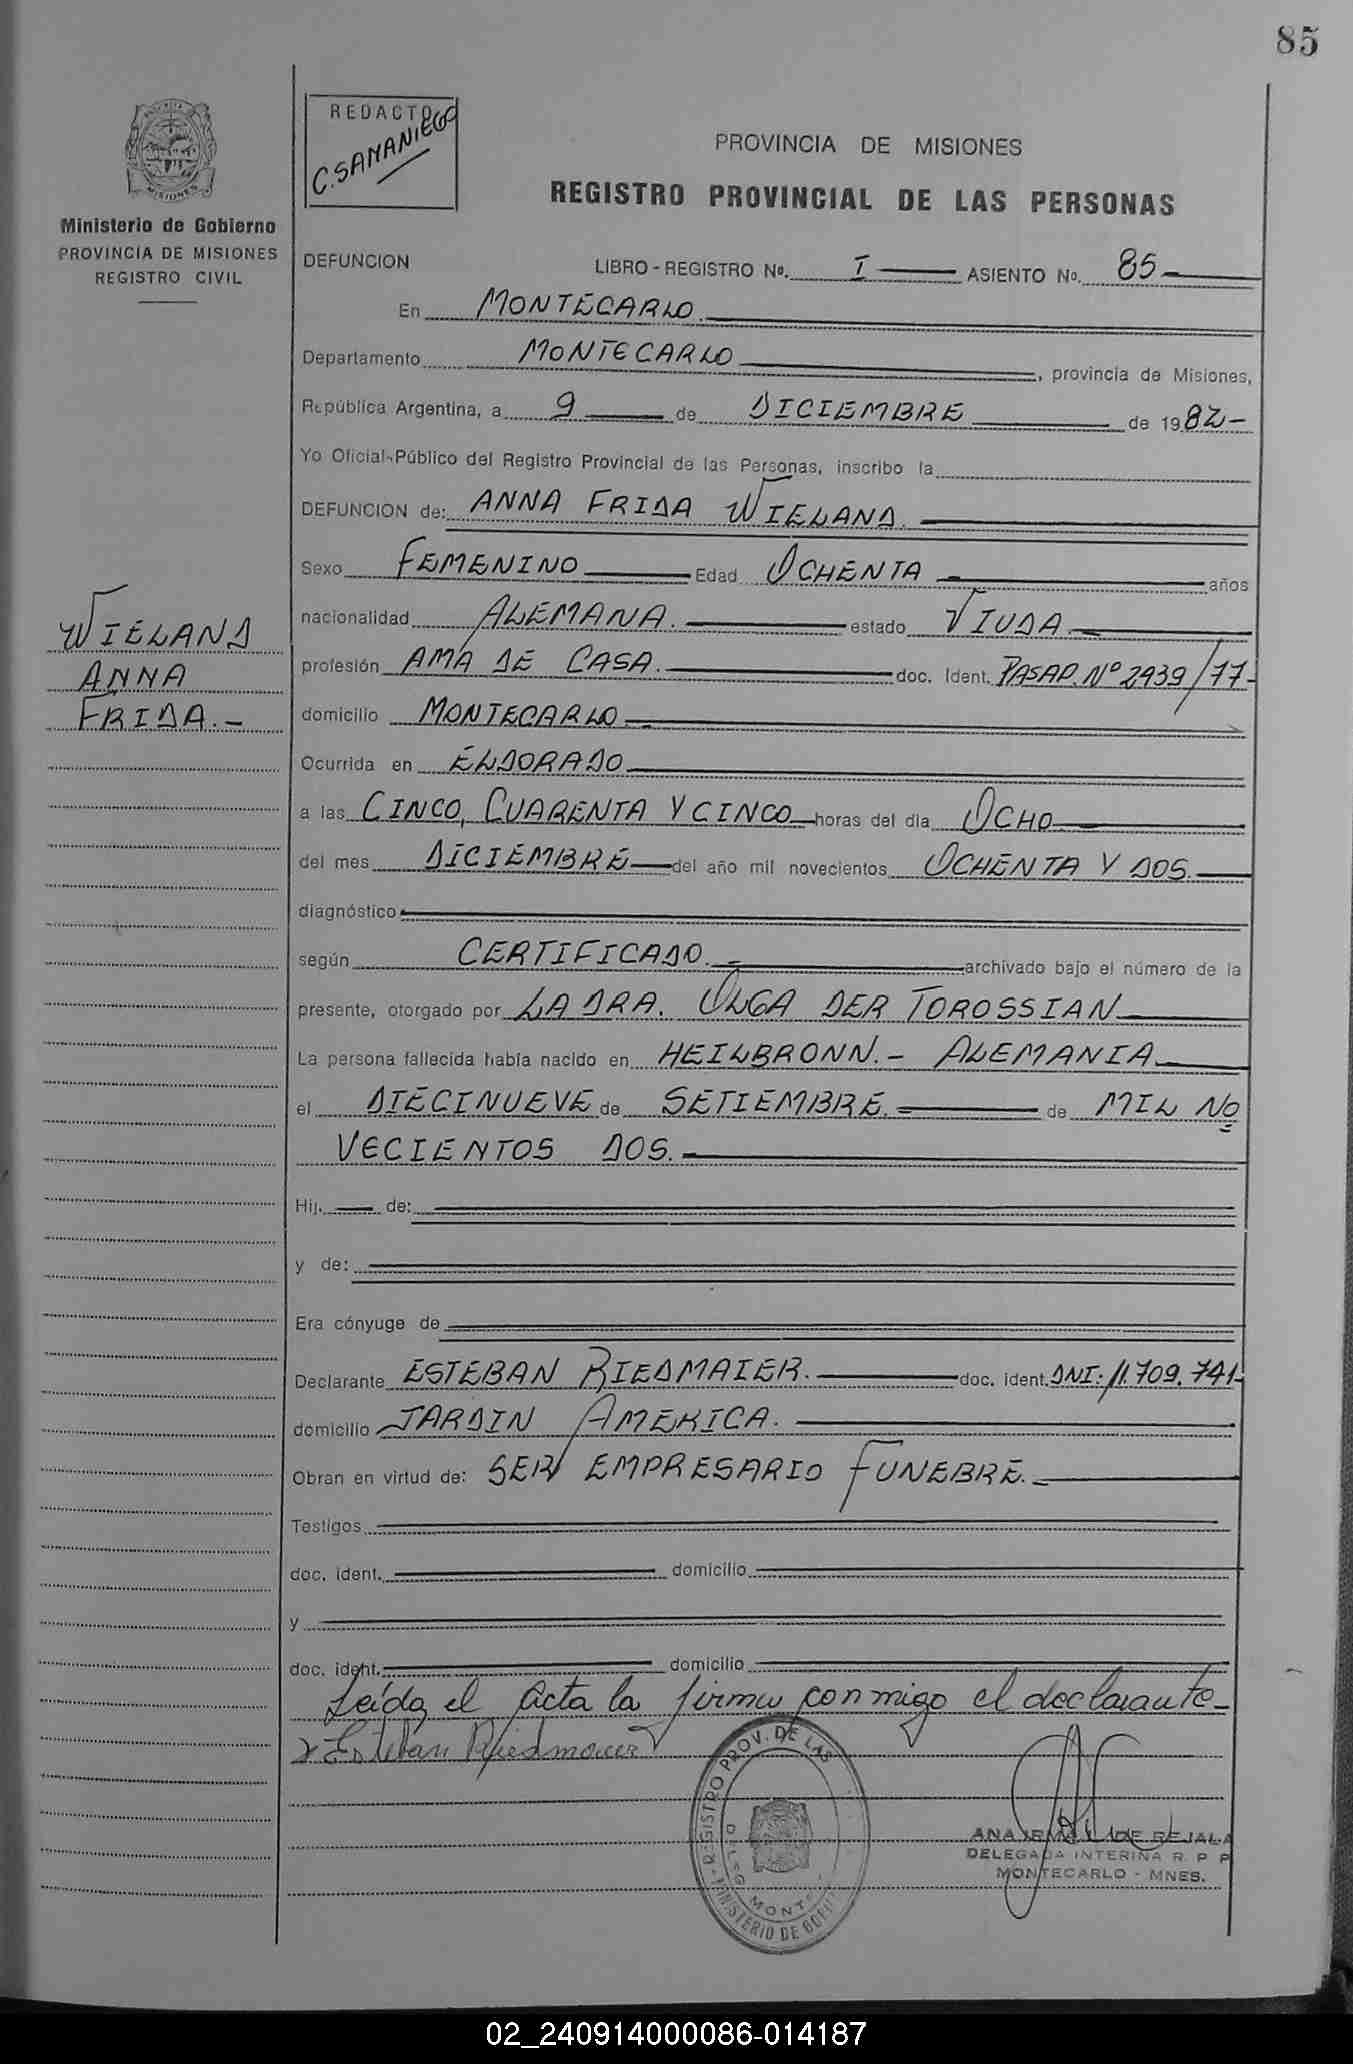 85
REDACTO
C. SAMANIEGO
PROVINCIA DE MISIONES
REGISTRO PROVINCIAL DE LAS PERSONAS
MISIONES
Ministerio de Gobierno
PROVINCIA DE MISIONES
REGISTRO CIVIL
DEFUNCION LIBRO - REGISTRO Nº. I ASIENTO Nº. 85
En MONTECARLO.
Departamento MONTECARLO, provincia de Misiones,
República Argentina, a 9 de DICIEMBRE de 1982-
Yo Oficial Público del Registro Provincial de las Personas, inscribo la
DEFUNCION de: ANNA FRIDA WIELAND.
Sexo FEMENINO Edad OCHENTA años
nacionalidad ALEMANA. estado VIUDA.
profesión AMA DE CASA. doc. Ident. PASAP. Nº 2939/77-
domicilio MONTECARLO
Ocurrida en ELDORADO
a las CINCO, CUARENTA Y CINCO horas del día OCHO
del mes DICIEMBRE del año mil novecientos OCHENTA Y DOS.
diagnóstico
según CERTIFICADO. archivado bajo el número de la
presente, otorgado por LA DRA. OLGA DER TOROSSIAN
La persona fallecida había nacido en HEILBRONN.- ALEMANIA
el DIECINUEVE de SETIEMBRE. de MIL NO
VECIENTOS DOS.
Hij. de:
y de:
Era cónyuge de
Declarante ESTEBAN RIEDMAIER. doc. ident. DNI: 11.709.741-
domicilio JARDIN AMERICA.
Obran en virtud de: SER EMPRESARIO FUNEBRE.
Testigos
doc. ident. domicilio
y
doc. ident. domicilio
Leída el acta la firma conmigo el declarante-
Esteban Riedmaier
WIELAND
ANNA
FRIDA.-
REGISTRO PROV. DE LAS
DELEG. MONTE
MINISTERIO DE GOB
ANA DE REJALA
DELEGADA INTERINA R. P. P
MONTECARLO - MNES.
02_240914000086-014187